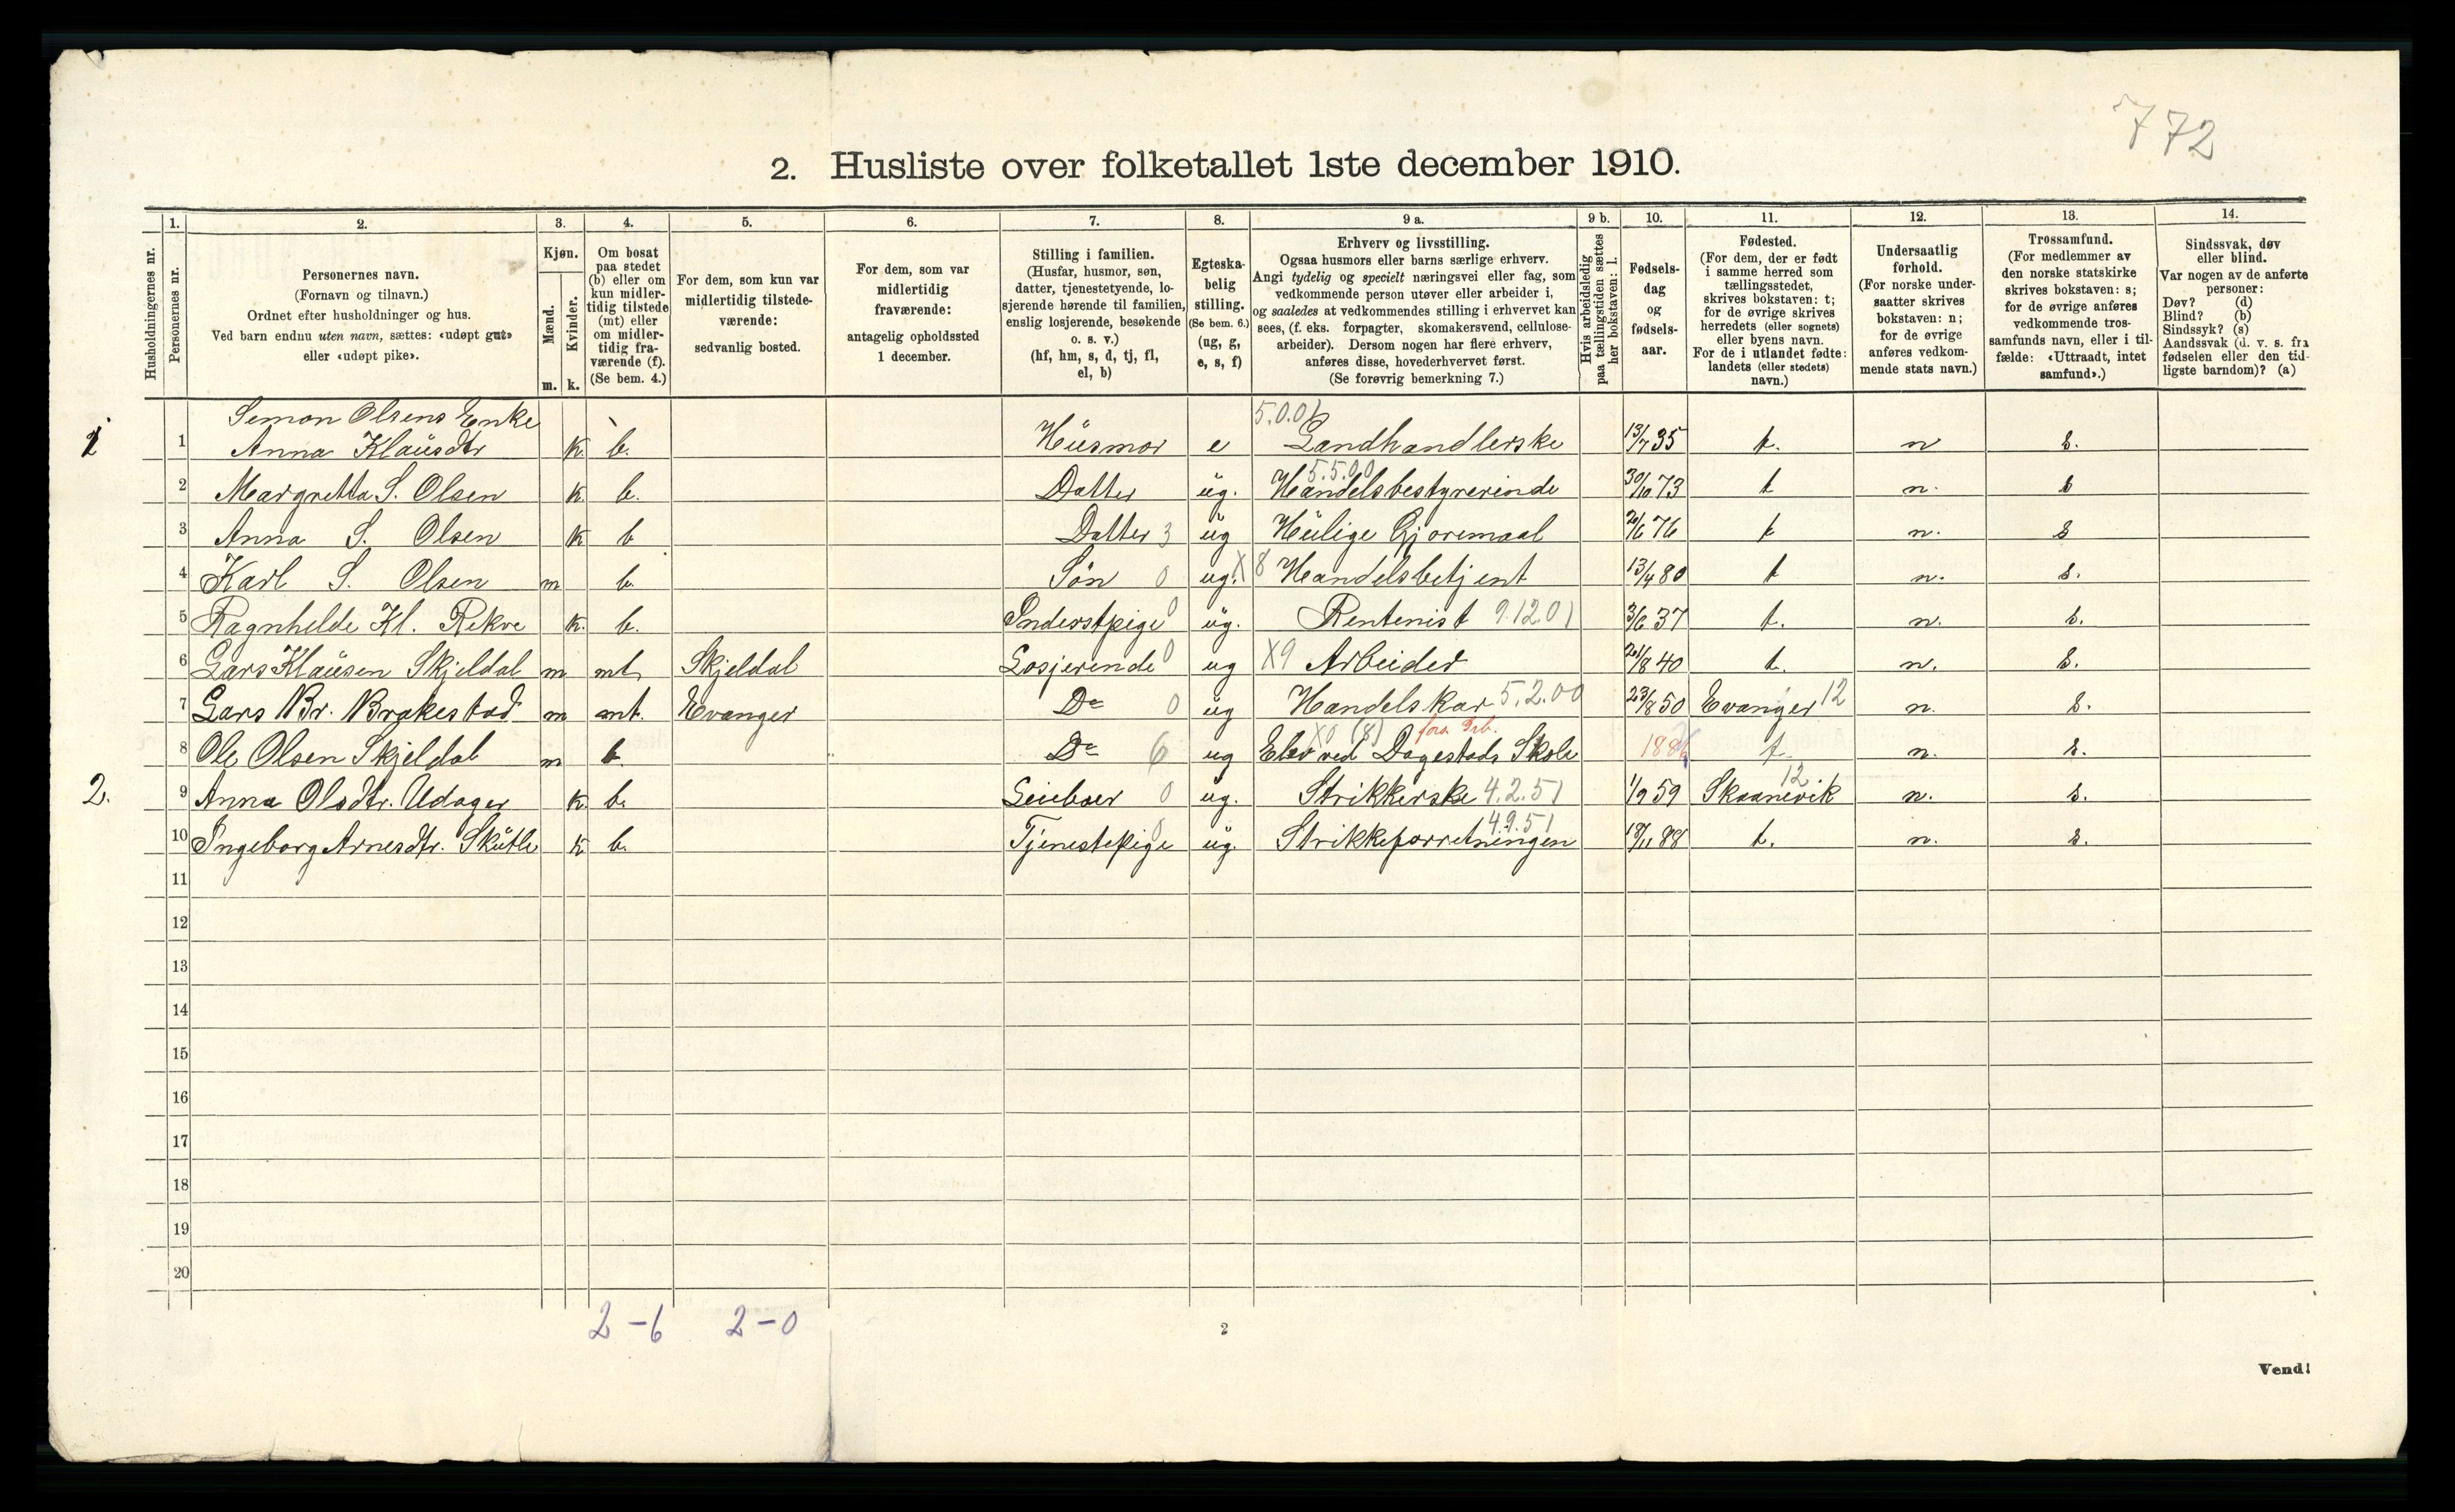 772
2. Husliste over folketallet 1ste december 1910.
Husholdningernes nr.
1.
Personernes nr.
2.
Personernes navn.
(Fornavn og tilnavn.)
Ordnet efter husholdninger og hus.
Ved barn endnu uten navn, sættes: «udøpt gut»
eller «udøpt pike».
3.
Kjøn.
Mænd.
m.
Kvinder.
k.
4.
Om bosat
paa stedet
(b) eller om
kun midler-
tidig tilstede
(mt) eller
om midler-
tidig fra-
værende (f).
(Se bem. 4.)
5.
For dem, som kun var
midlertidig tilstede-
værende:
sedvanlig bosted.
6.
For dem, som var
midlertidig
fraværende:
antagelig opholdssted
1 december.
7.
Stilling i familien.
(Husfar, husmor, søn,
datter, tjenestetyende, lo-
sjerende hørende til familien,
enslig losjerende, besøkende
o. s. v.)
(hf, hm, s, d, tj, fl,
el, b)
8.
Egteska-
belig
stilling.
(Se bem. 6.)
(ug, g,
e, s, f)
9 a.
Erhverv og livsstilling.
Ogsaa husmors eller barns særlige erhverv.
Angi tydelig og specielt næringsvei eller fag, som
vedkommende person utøver eller arbeider i,
og saaledes at vedkommendes stilling i erhvervet kan
sees, (f. eks. forpagter, skomakersvend, cellulose-
arbeider). Dersom nogen har flere erhverv,
anføres disse, hovederhvervet først.
(Se forøvrig bemerkning 7.)
9 b.
Hvis arbeidsledig
paa tællingstiden sættes
her bokstaven: l.
10.
Fødsels-
dag
og
fødsels-
aar.
11.
Fødested.
(For dem, der er født
i samme herred som
tællingsstedet,
skrives bokstaven: t;
for de øvrige skrives
herredets (eller sognets)
eller byens navn.
For de i utlandet fødte:
landets (eller stedets)
navn.)
12.
Undersaatlig
forhold.
(For norske under-
saatter skrives
bokstaven: n;
for de øvrige
anføres vedkom-
mende stats navn.)
13.
Trossamfund.
(For medlemmer av
den norske statskirke
skrives bokstaven: s;
for de øvrige anføres
vedkommende tros-
samfunds navn, eller i til-
fælde: «Uttraadt, intet
samfund».)
14.
Sindssvak, døv
eller blind.
Var nogen av de anførte
personer:
Døv? (d)
Blind? (b)
Sindssyk? (s)
Aandssvak (d. v. s. fra
fødselen eller den tid-
ligste barndom)? (a)
Simon Olsens Enke 5.0.0
1 1 Anna Klausdtr k. b. Husmor e Landhandlerske 13/7 35 t. n s.
2 Margretta S. Olsen k. b. Datter ug. 5.5.00 Handelsbestyrerinde 30/10 73 t n. s
3 Anna S. Olsen k b Datter 3 ug Huslige Gjøremaal 76 t n. s
4 Karl S. Olsen m b. Søn 0 ug. X8 Handelsbetjent 13/4 80 t n. s.
5 Ragnhilde Kl. Rekve k. b. 0 ug. Rentenist 9.12.01 3/6 37 t. n. s.
6 Lars Klausen Skjeldal m mt. Skjeldal Losjerende 0 ug X9 Arbeider 21/8 40 t. n. s.
7 Lars Br. Brakestad m mt. Evanger Do 0 ug Handelskar 5.2.00 23/8 50 Evanger 12 n. s.
8 Ole Olsen Skjeldal m b Do 6 ug X0 (8) Elev ved Dagestads Skole t n. s.
2. 9 Anna Olsdtr. Udager k. b. Leieboer 0 ug. Strikkerske 4.2.51 1/9 59 Skaanevik 12 n. s.
10 Ingeborg Arnesdtr. Skutle k b. Tjenestepige 0 ug. Strikkeforretningen 4.9.51 18/11 88 t. n. s.
11
12
13
14
15
16
17
18
19
20
2-6 2-0
2
Vend!